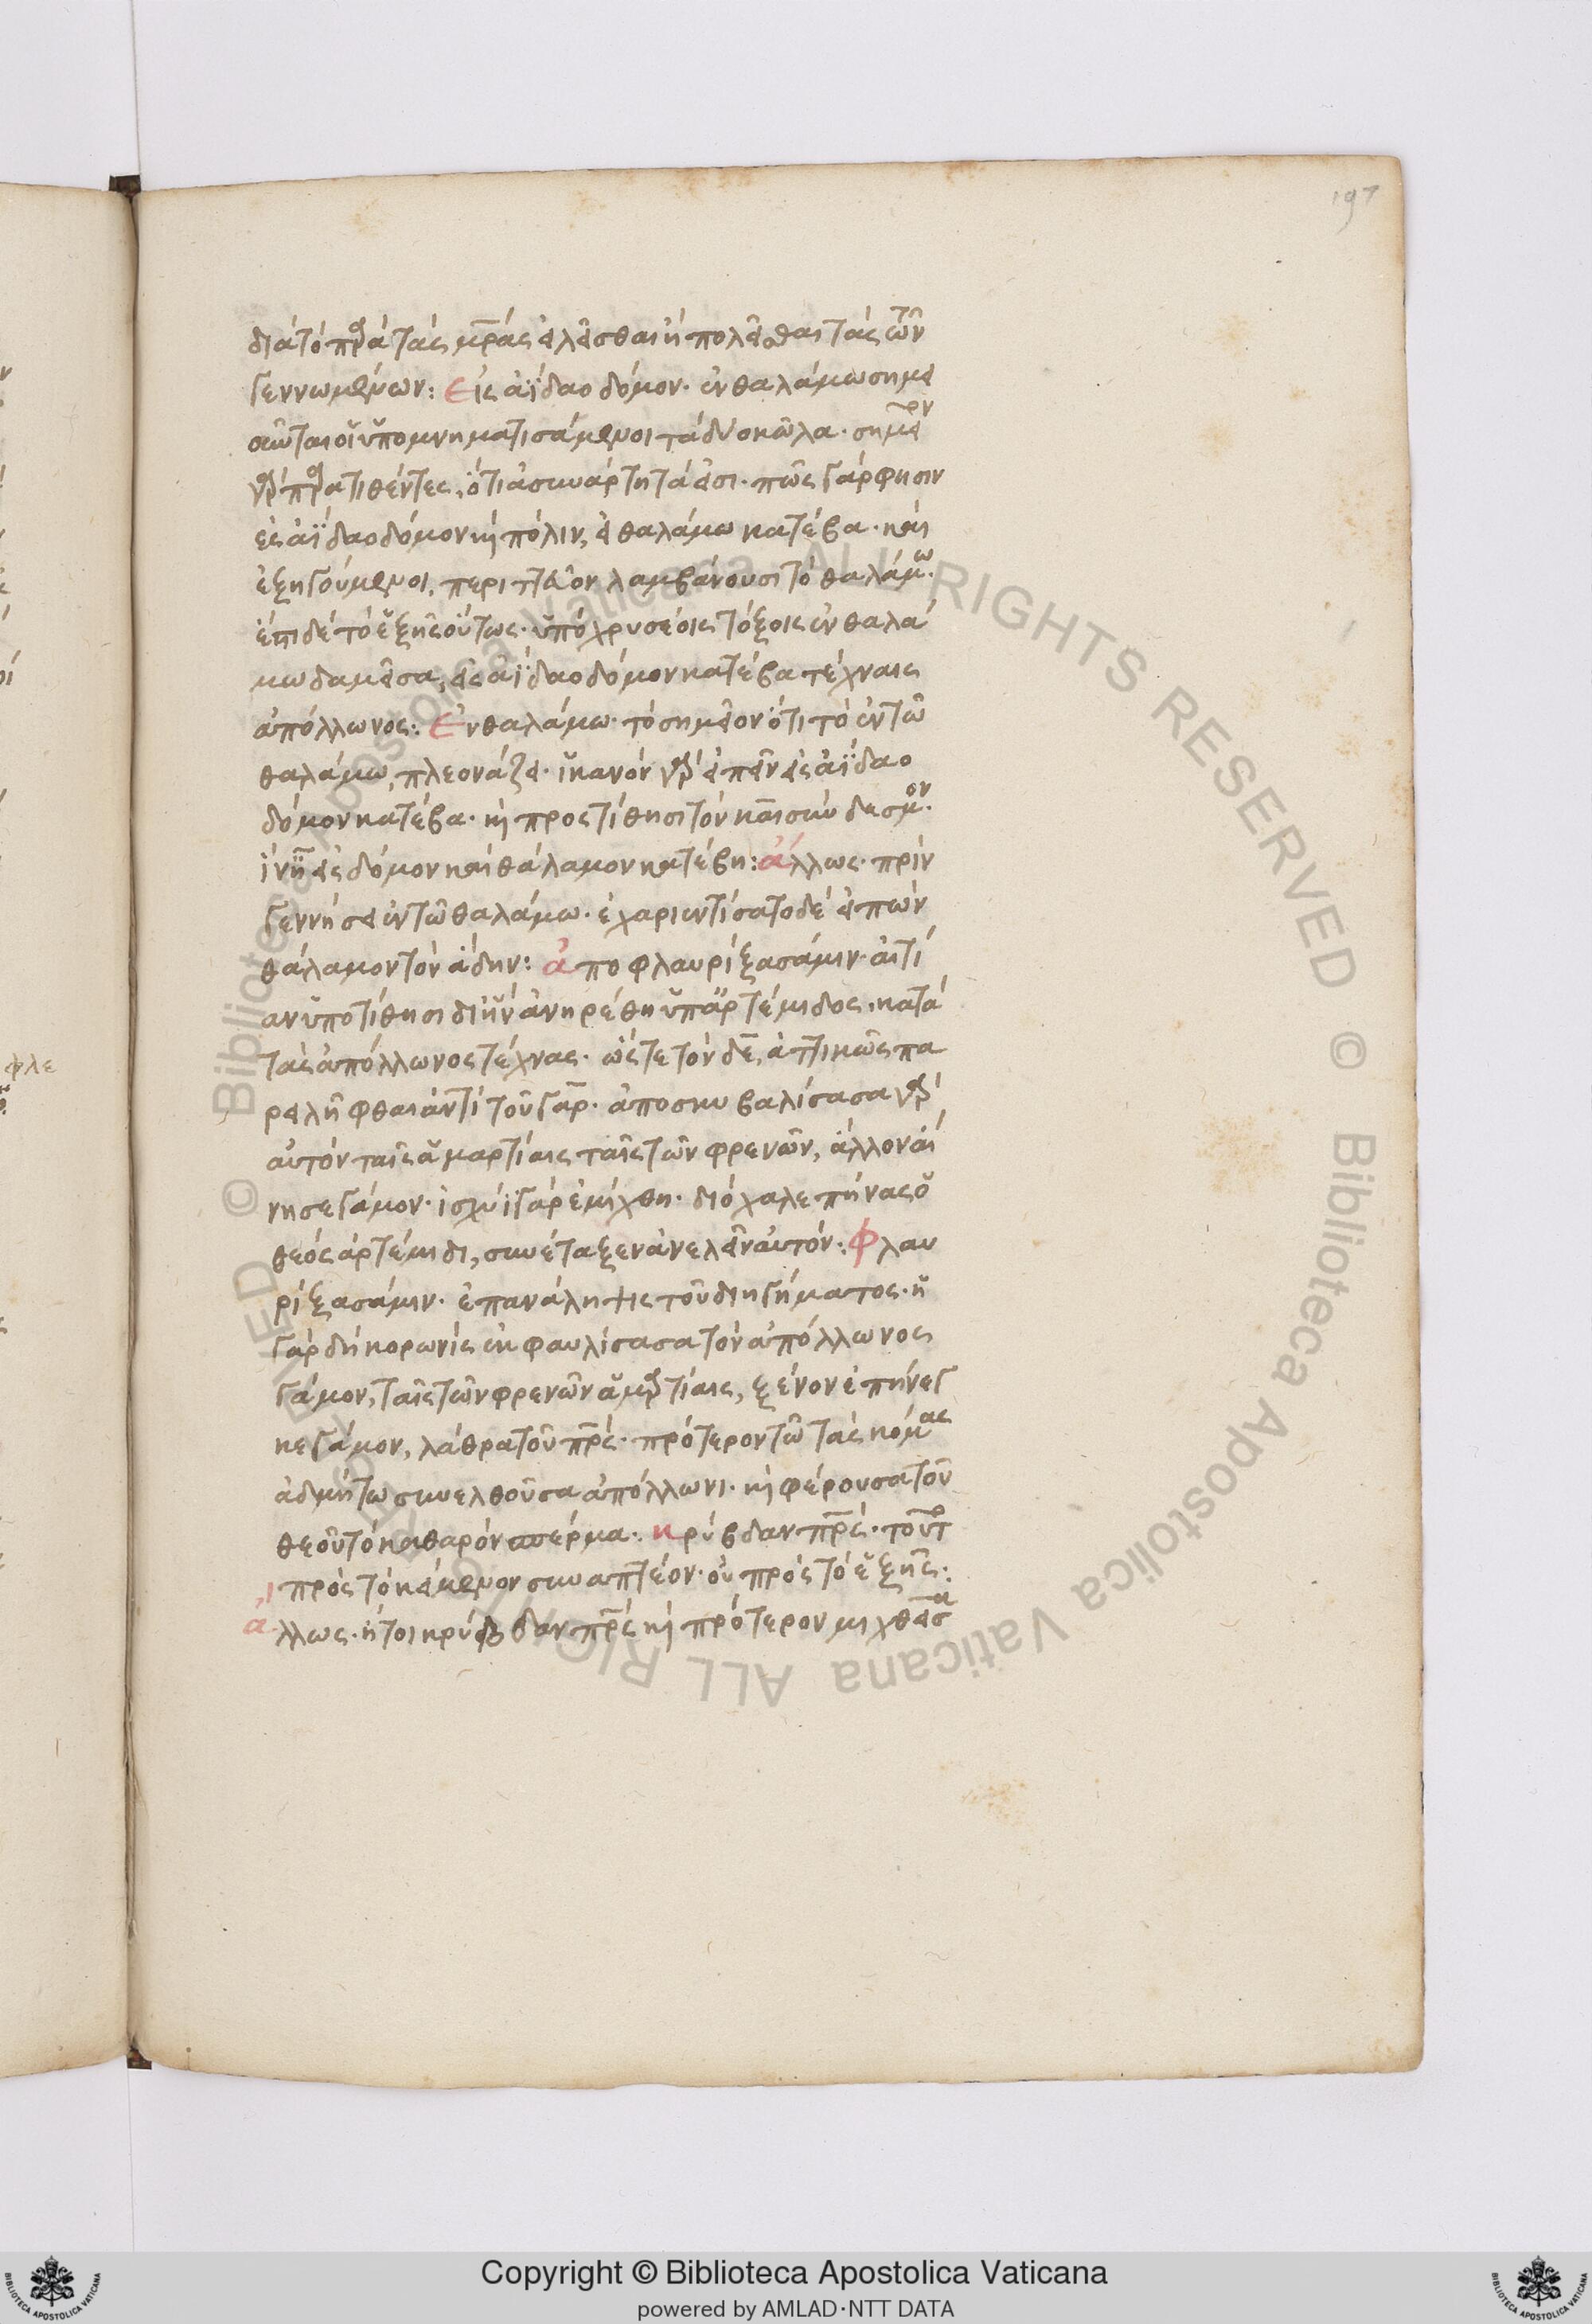 197
διὰ τὸ πρὰ τὰς μρὰς εἰλεῖσθαι ἢ πολεῖσθαι τὰς τῶν
γεννωμένων: Εἰς ἀΐδαο δόμον· ἐν θαλάμω σημει
οῦνται οἱ ὑπομνηματισάμενοι τὰ δύο κῶλα· σημεῖον
γὰρ παρατιθέντες, ὅτι ἀσυνάρτητά εἰσι· πῶς γάρ φησιν
εἰς ἀΐδαο δόμον καὶ πόλιν, ἐν θαλάμω κατέβα· καὶ
ἐξηγούμενοι, περιττὸν λαμβάνουσι τὸ θαλάμω·
ἔπι δὲ τὸ ἑξῆς οὕτως· ὑπὸ χρυσέοις τόξοις ἐν θαλά
μω δαμεῖσα, εἰς ἀΐδαο δόμον κατέβα τέχναις
ἀπόλλωνος: Ἐν θαλάμω· τὸ σημεῖον ὅτι τὸ ἐν τῶ
θαλάμω, πλεονάζει· ἱκανὸν γὰρ εἰπεῖν εἰς ἀΐδαο
δόμον κατέβα· καὶ προστίθησι τὸν καὶ σὺν δεσμον·
ἵν ᾖ εἰς δόμον καὶ θάλαμον κατέβη: ἄλλως· πρὶν
γεννήσει ἐν τῶ θαλάμω· ἐχαριεντίσατο δὲ εἰπὼν
θάλαμον τὸν ἅδην: ἀποφλαυρίξασά μιν· αἰτί
αν ὑποτίθησι δι ἣν ἀνηρέθη ὑπ ἀρτέμιδος· κατὰ
τὰς ἀπόλλωνος τέχνας· ὥστε τὸν δὲ, ἀττικῶς πα
ρειλῆφθαι ἀντὶ τοῦ γάρ· ἀποσκυβαλίσασα γὰρ
αὐτὸν ταῖς ἁμαρτίαις ταῖς τῶν φρενῶν, ἄλλον αἴ
νησε γάμον· ἰσχύϊ γὰρ ἐμίχθη· διὸ χαλεπήνας ὁ
θεὸς ἀρτέμιδι, συνέταξεν ἀνελεῖν αὐτόν: Φλαυ
ρίξασά μιν· ἐπανάληψις τοῦ διηγήματος· ἡ
γὰρ δὴ κορωνὶς ἐκφαυλίσασα τὸν ἀπόλλωνος
γάμον, ταῖς τῶν φρενῶν ἁμαρτίαις, ξένον ἐπήνεγ
κε γάμον, λάθρα τοῦ πρς· πρότερον τῶ τὰς κόμας
ἀδμήτω συνελθοῦσα ἀπόλλωνι· καὶ φέρουσα τοῦ
θεοῦ τὸ καθαρὸν σπέρμα: κρύβδαν πρς· τοῦτο
πρὸς τὸ κείμενον συναπτέον· οὐ πρὸς τὸ ἑξῆς:
ἄλλως· ἤτοι κρύβδαν πρς καὶ πρότερον μιχθεῖσα
φλε
© Biblioteca Apostolica Vaticana ALL RIGHTS RESERVED
Copyright © Biblioteca Apostolica Vaticana
powered by AMLAD·NTT DATA